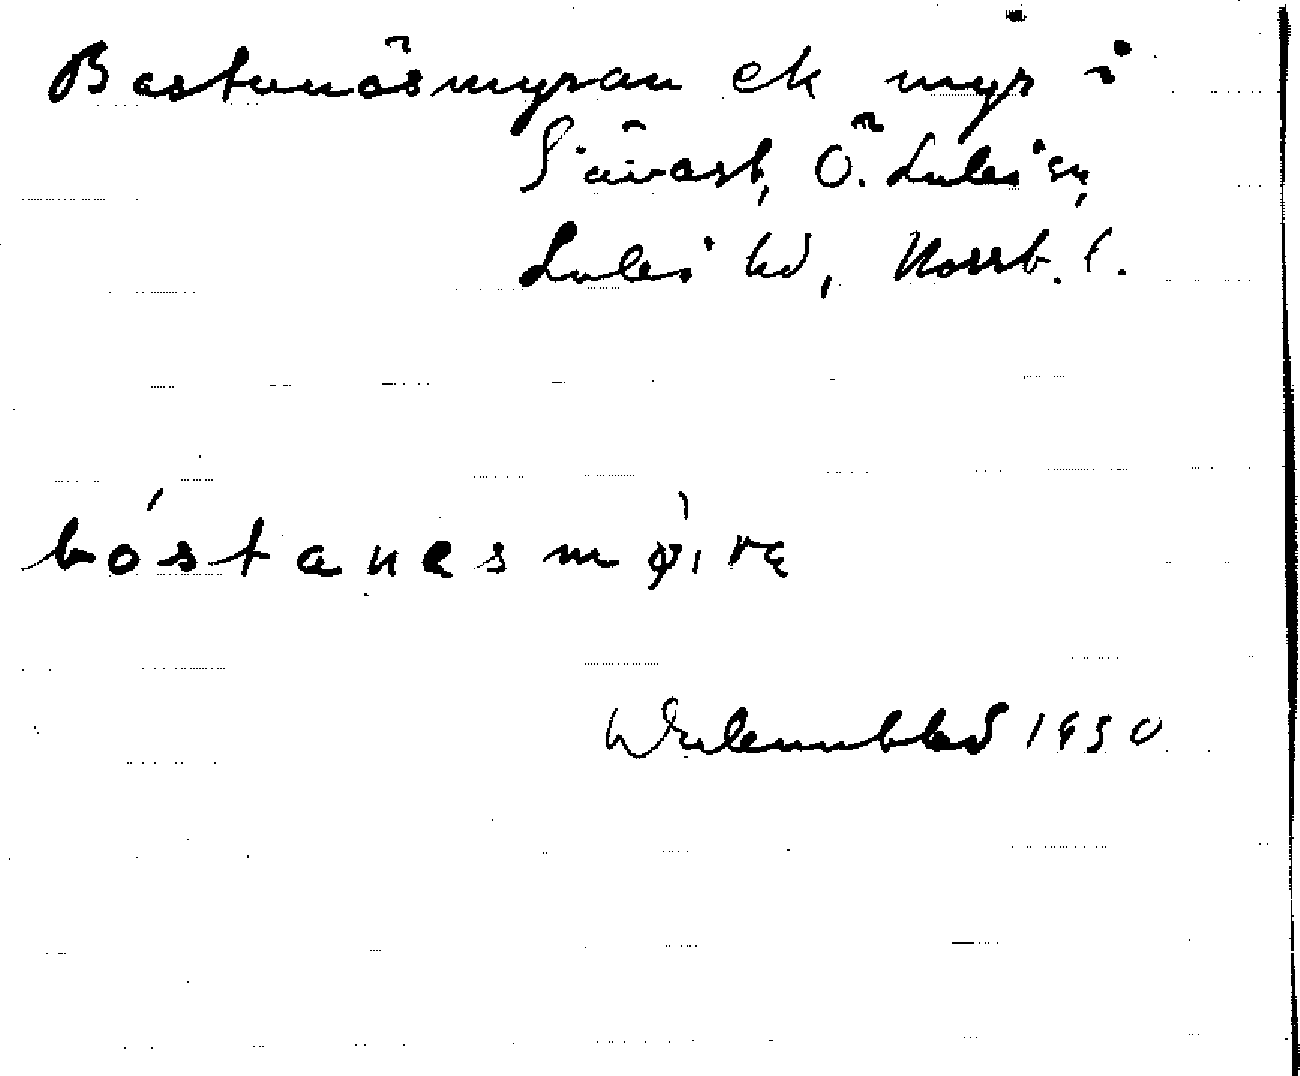 Bastunäsmyran ek myr i
Sävast, Ö. Luleå sn,
Luleå hd, Norrb. l.
bóstanesmỳi,rę
Wulemblad 1930